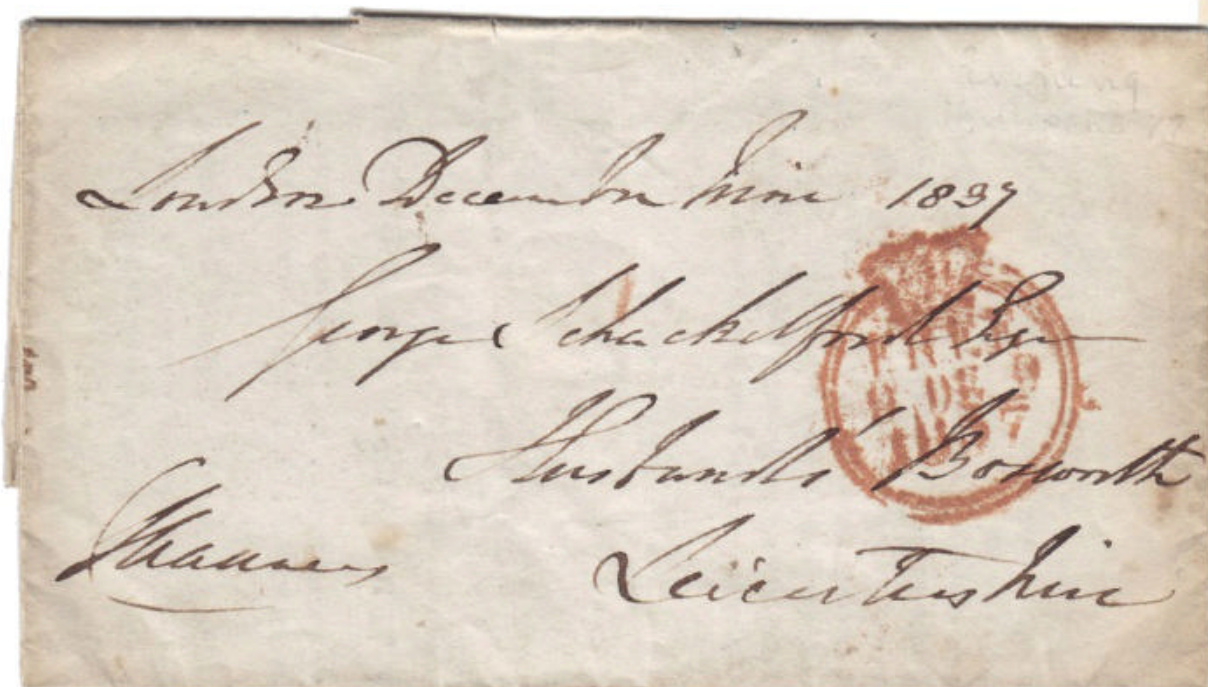 London December nine 1837
George Schackelford Esqr
FREE
9 DE 9
1837
Husbands Bosworth
Leicestershire